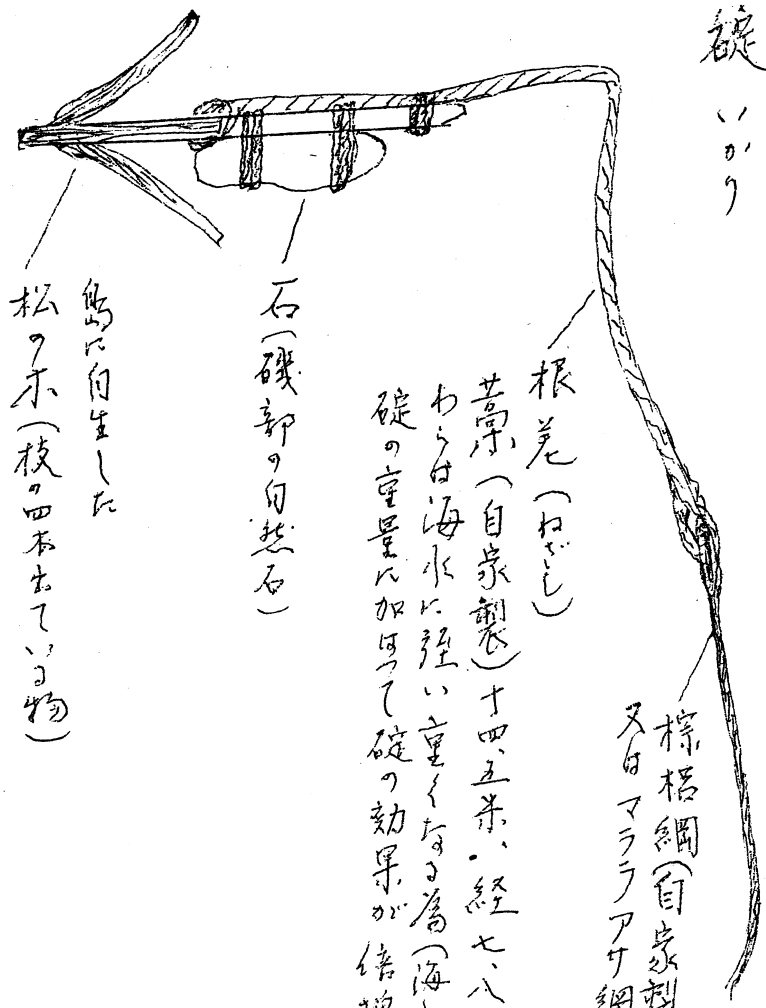 碇 いかり
棕梠綱(自家製
又はマララアサ綱
根差(ねざし)
藁(自家製)十四、五米、経七、八
わらは海水に強い重くなる為(海
碇の重量に加はつて碇の効果が倍
石(磯部の自然石)
島に自生した
松の木(枝の四本出ている物)